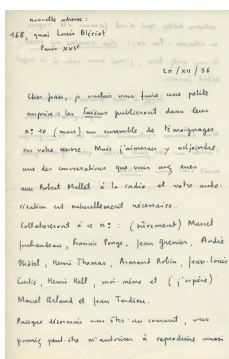 nouvelle adresse :
168, quai Louis Blériot
Paris XVIe
20 / XII / 56
Cher Jean, je voulais vous faire une petite
surprise : les Saisons publieront dans leur
n° 10 (mars) un ensemble de témoignages
sur votre œuvre. Mais j'aimerais y adjoindre
une des conversations que vous avez eues
avec Robert Mallet à la radio et votre auto-
risation est naturellement nécessaire.
Collaboreront à ce n° : (sûrement) Marcel
Jouhandeau, Francis Ponge, Jean Grenier, André
Dhôtel, Henri Thomas, Armand Robin, Jean-Louis
Curtis, Henri Hell, moi-même et (j'espère)
Marcel Arland et Jean Tardieu.
Puisque désormais vous êtes au courant, vous
pourrez peut-être m'autoriser à reproduire aussi